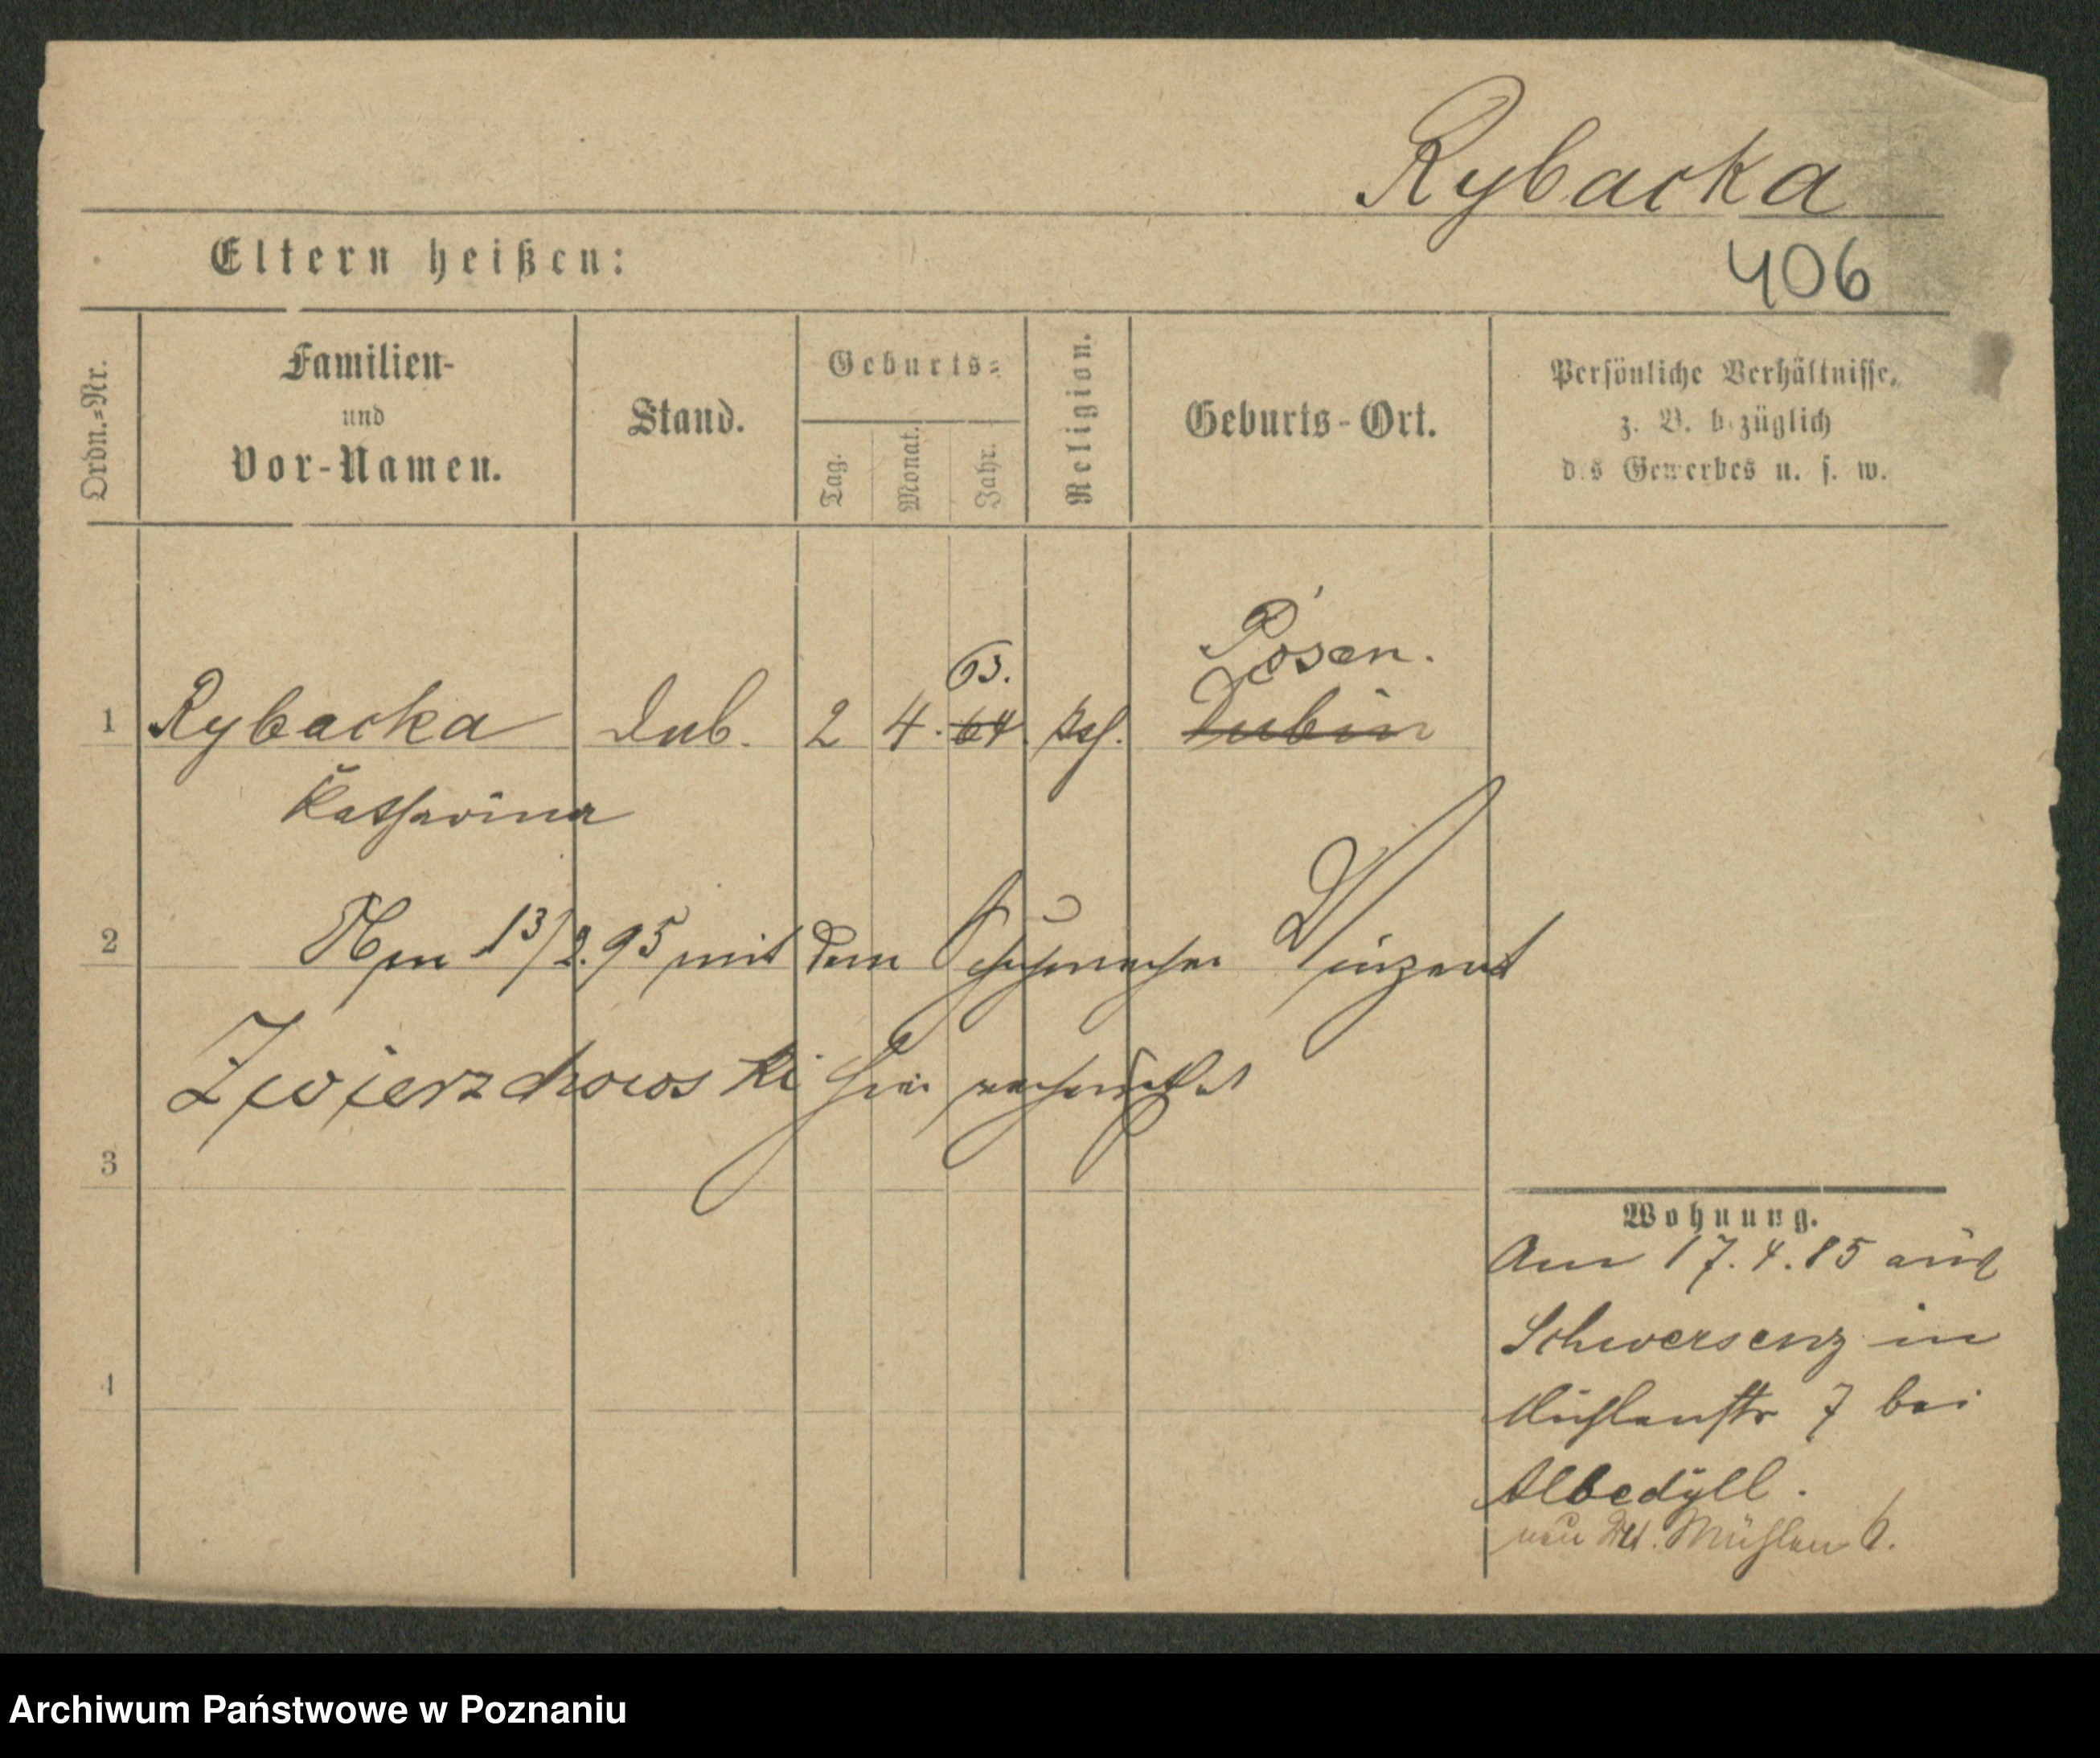 Rybacka
406
Eltern heißen:
Ordn.=Nr.
Familien-
und
Vor-Namen.
Stand.
Geburts=
Tag.
Monat.
Jahr.
Religion.
Geburts-Ort.
Persönliche Verhältnisse,
z. B. bezüglich
des Gewerbes u. s. w.
63.
Posen.
1 Rybacka 2 4. 64. Dubin
Katharina
2 Am 13/2.95 mit dem Schuhmacher Vinzent
Zwierzchowski hier verheirathet
3
4
Wohnung.
Am 17.4.85 aus
Schwersenz in
Mühlenstr 7 bei
Albedyll.
Mühlen 6.
Archiwum Państwowe w Poznaniu